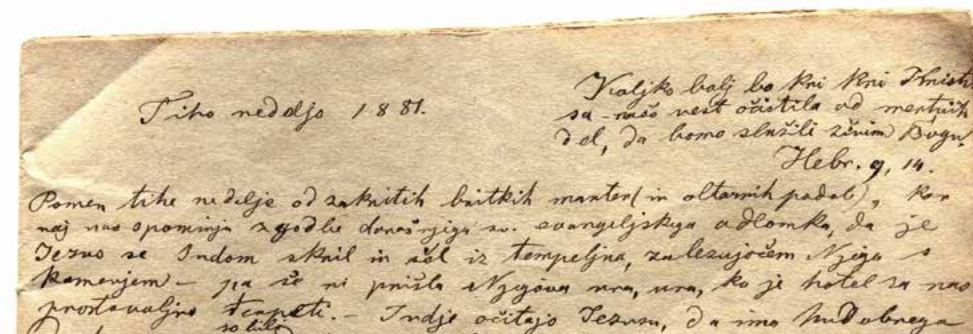 Tiho nedeljo 1881.
Koljko bolj bo kri Krist
sa našo vest očistila od mertvih
del, da bomo služili živim Bogu.
Hebr. 9, 14.
Pomen tihe nedelje od zakritih britkih marter (in oltarnih podob), kar
naj nas spominja zgodbe današnjiga sv. evangeljskega odlomka, da je
Jezus se Judom skril in šel iz tempeljna, zalezujočem Njega s
kamenjem – pa še ni prišla Njegova ura, ura, ko je hotel za nas
prostovoljno terpeti. – Judje očitajo Jezusu, da ima hudobnega